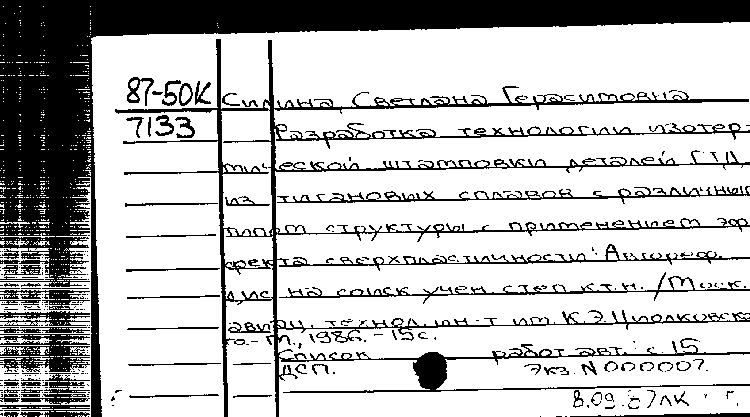 87-50К Силина, Светлана Герасимовна
7133 Разработка технологии изотер-
мической штамповки деталей ГТД
из титановых сплавов с различным
типом структуры с применением эф-
фекта сверхпластичности: Автореф.
дис. на соиск. учен. степ. к.т.н. /Моск.
авиац. технол. ин-т им. К.Э.Циолковско-
го.- М., 1986. - 15 с.
Список работ авт.: с. 15
ДСП. Экз. N 000007.
8.09.87 ЛК